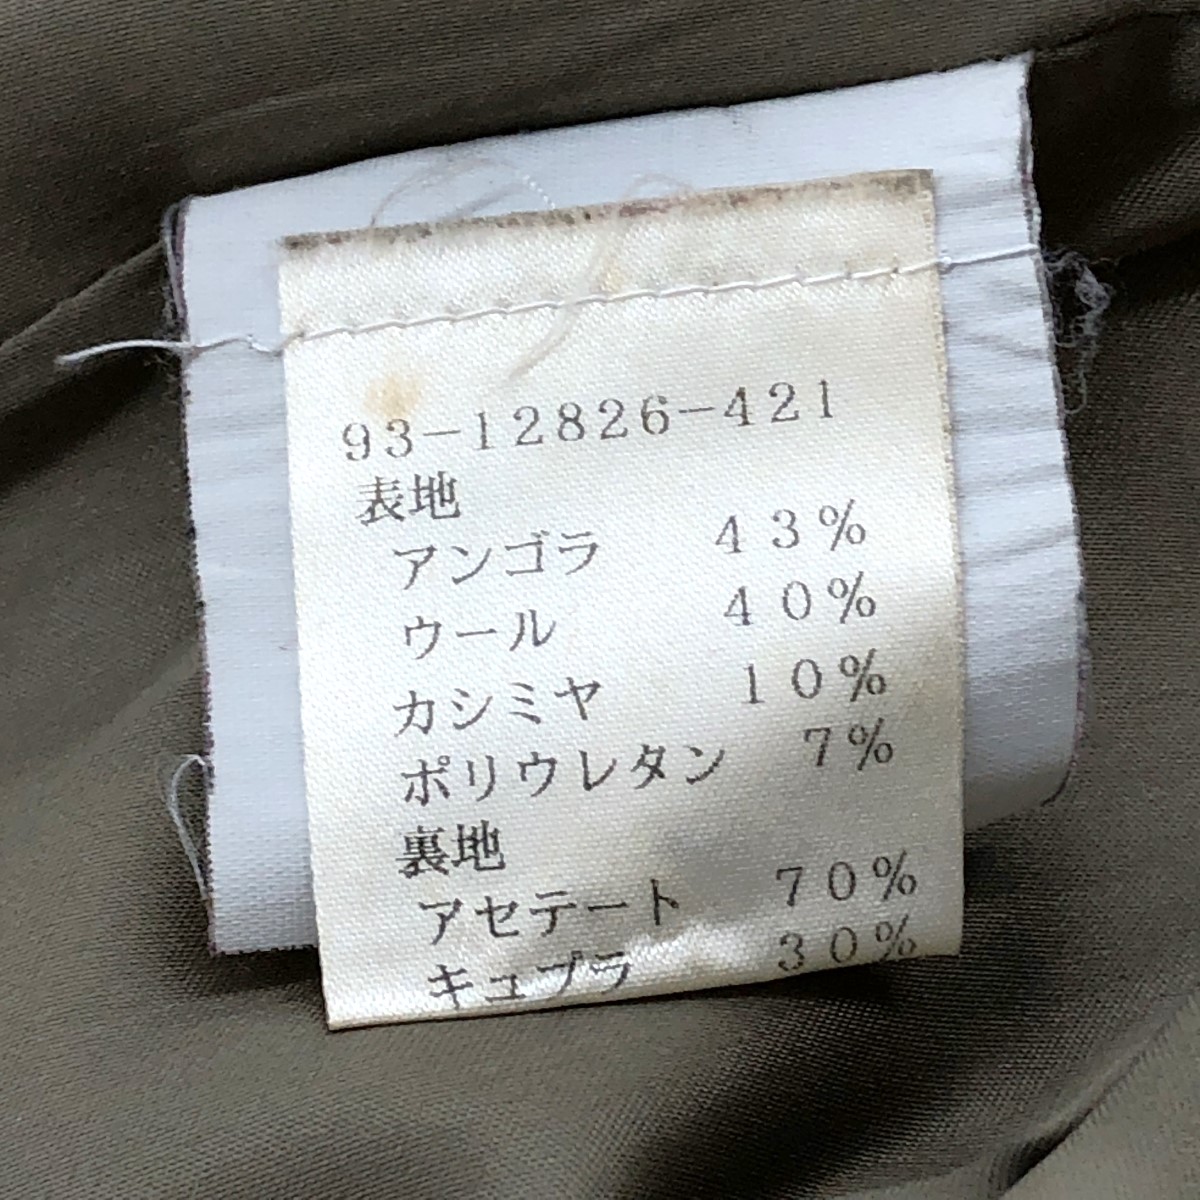 93-12826-421
表地
アンゴラ 43%
ウール 40%
カシミヤ 10%
ポリウレタン 7%
裏地
アセテート 70%
キュプラ 30%